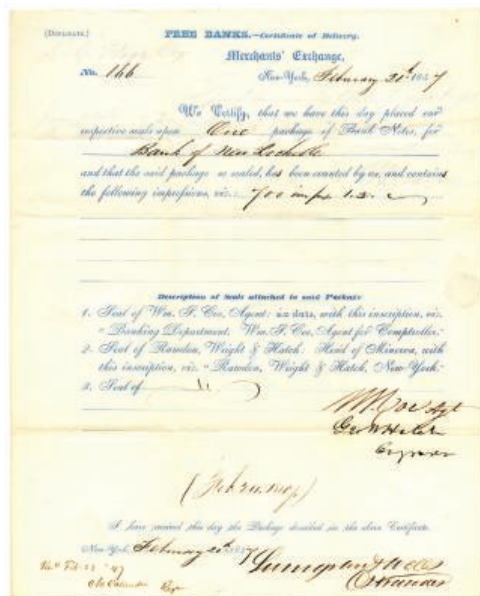 (DUPLICATE.)
FREE BANKS.—Certificate of Delivery.
Merchants' Exchange,
No. 166
New-York, February 20th 1847
We Certify, that we have this day placed our
respective seals upon One package of Bank Notes, for
Bank of New Rochelle
and that the said package so sealed, has been counted by us, and contains
the following impressions, viz. 700 imps 1.2.
Description of Seals attached to said Package
1. Seal of Wm. F. Coe, Agent: with this inscription, viz.
"Banking Department. Wm. F. Coe, Agent for Comptroller."
2. Seal of Rawdon, Wright & Hatch: Head of Minerva, with
this inscription, viz. "Rawdon, Wright & Hatch, New-York."
3. Seal of
Wm F. Coe Agt
Geo W Hatch
I have received this day the Package described in the above Certificate.
New-York, February 20th 1847
Livingston & Wells
Feb 23 '47